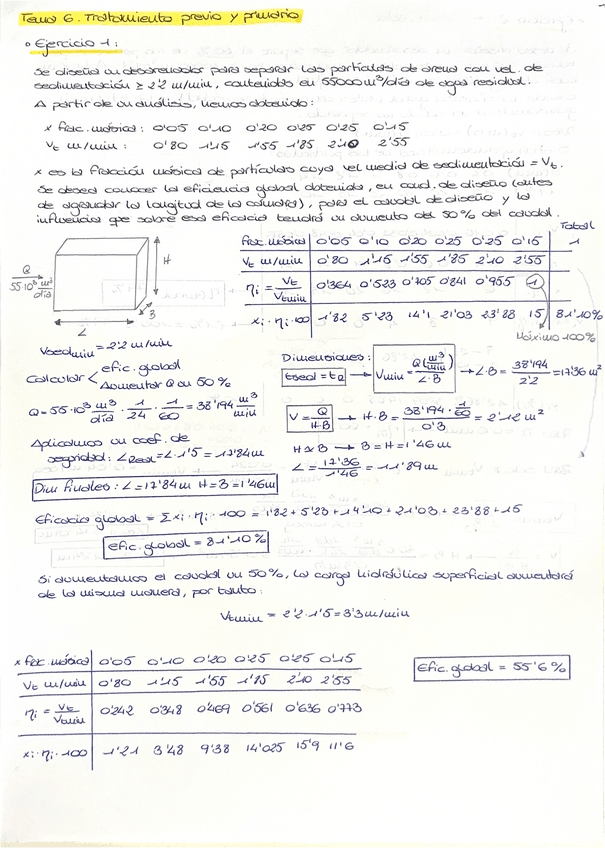 Tema 6. Tratamiento previo y primario
• Ejercicio 1:
Se diseña un desarenador para separar las partículas de arena con vel. de
sedimentación ≥ 2'2 m/min, contenidas en 55000 m³/día de agua residual.
A partir de un análisis, hemos obtenido:
x frac. másica: 0'05 0'10 0'20 0'25 0'25 0'15
Vt m/min: 0'80 1'15 1'55 1'85 2'10 2'55
x es la fracción másica de partículas cuya vel media de sedimentación = Vt.
Se desea conocer la eficiencia global obtenida, en cond. de diseño (antes
de agrandar la longitud de la cámara), para el caudal de diseño y la
influencia que sobre esa eficacia tendrá un aumento del 50% del caudal.
Total
frac. másica 0'05 0'10 0'20 0'25 0'25 0'15 1
Vt m/min 0'80 1'15 1'55 1'85 2'10 2'55
ηi = Vt/Vtmin 0'364 0'523 0'705 0'841 0'955 1
xi·ηi·100 1'82 5'23 14'1 21'03 23'88 15 81'10%
Máximo 100%
Q
55·10³ m³/día
H
B
L
Vsedmin = 2'2 m/min
Calcular efic. global
Aumentar Q un 50%
Q = 55·10³ m³/día · 1/24 · 1/60 = 38'194 m³/min
Aplicamos un coef. de
seguridad: LReal = L·1'5 = 17'84 m
Dim finales: L = 17'84 m H = B = 1'46 m
Dimensiones:
tsed = tQ → Vmin = Q (m³/min)/L·B → L·B = 38'194/2'2 = 17'36 m²
V = Q/H·B → H·B = 38'194·1/60/0'3 = 2'12 m²
H≈B → B = H = 1'46 m
L = 17'36/1'46 = 11'89 m
Eficacia global = Σ xi·ηi·100 = 1'82 + 5'23 + 14'10 + 21'03 + 23'88 + 15
efic. global = 81'10%
Si aumentamos el caudal un 50%, la carga hidráulica superficial aumentará
de la misma manera, por tanto:
Vtmin = 2'2·1'5 = 3'3 m/min
x frac. másica 0'05 0'10 0'20 0'25 0'25 0'15
Vt m/min 0'80 1'15 1'55 1'85 2'10 2'55
ηi = Vt/Vtmin 0'242 0'348 0'469 0'561 0'636 0'773
xi·ηi·100 1'21 3'48 9'38 14'025 15'9 11'6
Efic. global = 55'6%